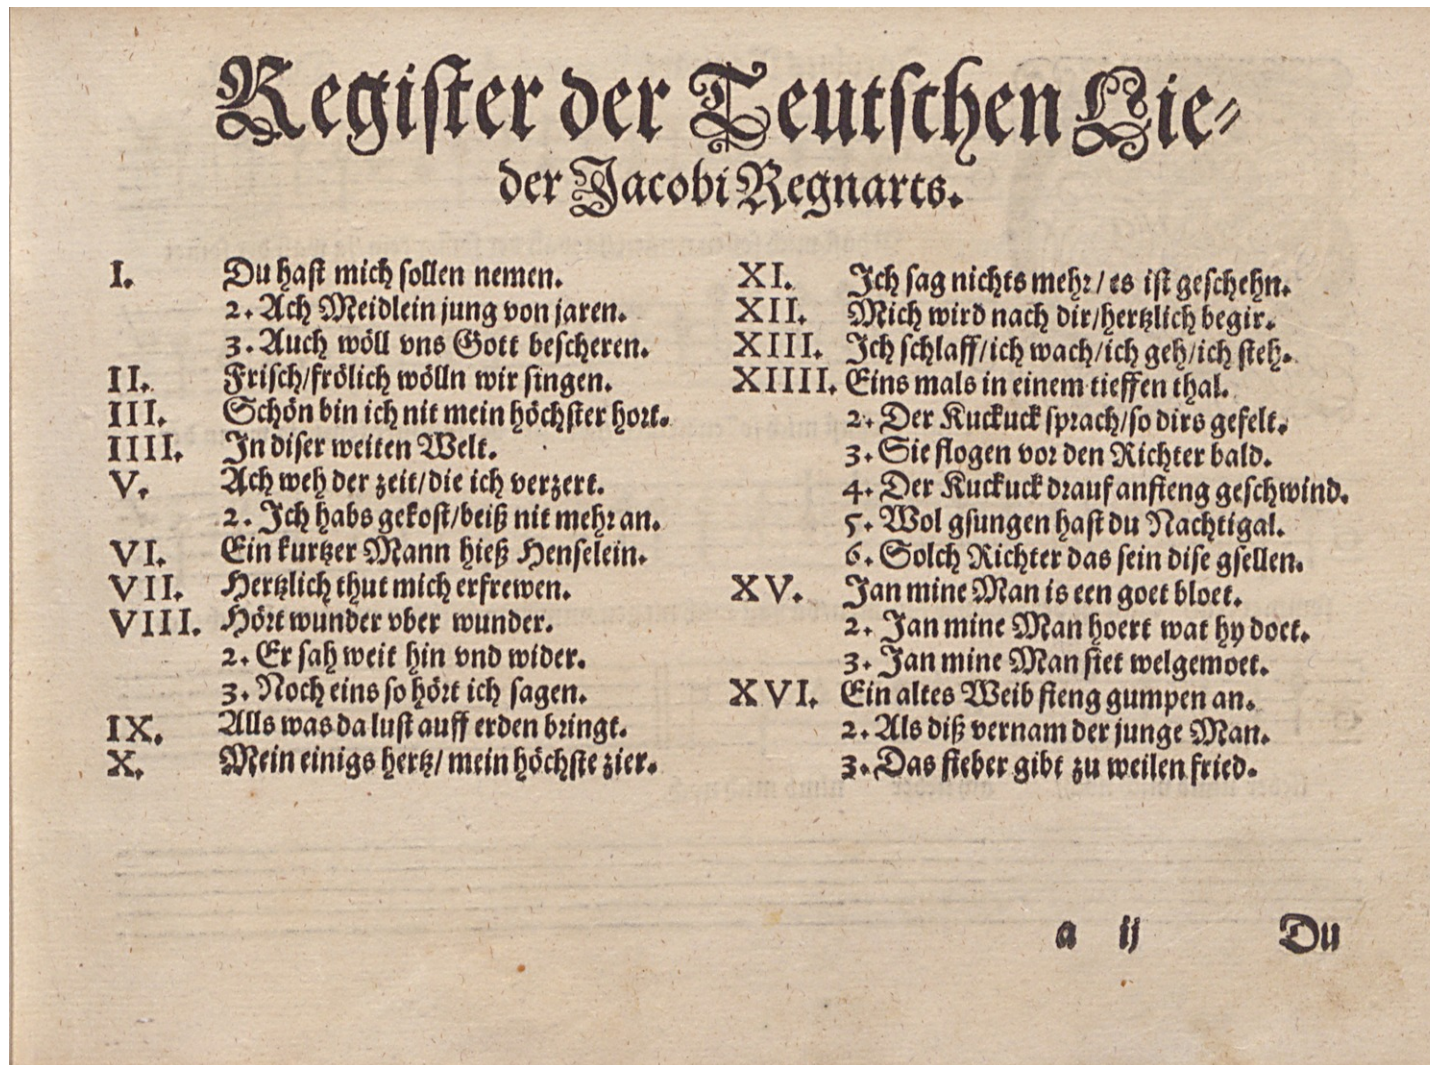 Register der Teutschen Lie-
der Jacobi Regnarts.
I. Du hast mich sollen nemen.
2. Ach Meidlein jung von jaren.
3. Auch wöll vns Gott bescheren.
II. Frisch/frölich wölln wir singen.
III. Schön bin ich nit mein höchster hort.
IIII. In diser weiten Welt.
V. Ach weh der zeit/die ich verzert.
2. Ich habs gekost/beiß nit mehr an.
VI. Ein kurtzer Mann hieß Henselein.
VII. Hertzlich thut mich erfrewen.
VIII. Hört wunder vber wunder.
2. Er sah weit hin vnd wider.
3. Noch eins so hört ich sagen.
IX. Alls was da lust auff erden bringt.
X. Mein einigs hertz/ mein höchste zier.
XI. Ich sag nichts mehr/ es ist geschehn.
XII. Mich wird nach dir/hertzlich begir.
XIII. Ich schlaff/ich wach/ich geh/ich steh.
XIIII. Eins mals in einem tieffen thal.
2. Der Kuckuck sprach/so dirs gefelt.
3. Sie flogen vor den Richter bald.
4. Der Kuckuck drauf anfieng geschwind.
5. Wol gsungen hast du Nachtigal.
6. Solch Richter das sein dise gsellen.
XV. Jan mine Man is een goet bloet.
2. Jan mine Man hoert wat hy doet.
3. Jan mine Man siet welgemoet.
XVI. Ein altes Weib fieng gumpen an.
2. Als diß vernam der junge Man.
3. Das fieber gibt zu weilen fried.
a ij Du